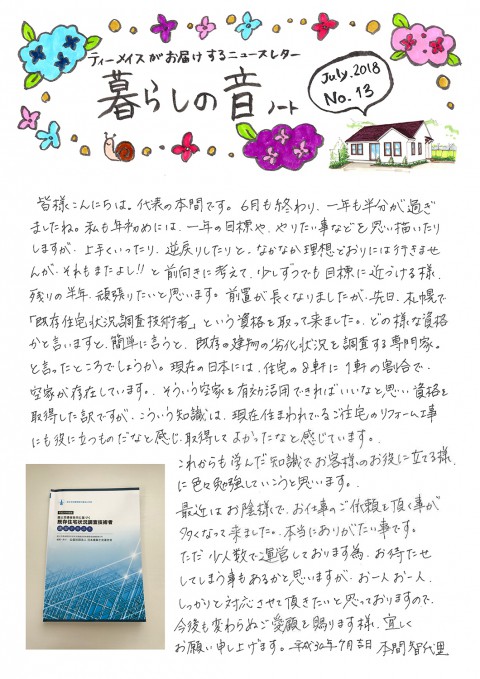 ティーメイスがお届けするニュースレター
暮らしの音ノート
July.2018
No.13
皆様こんにちは。代表の本間です。6月も終わり、一年も半分が過ぎ
ましたね。私も年初めには、一年の目標や、やりたい事などを思い描いたり
しますが、上手くいったり、逆戻りしたりと、なかなか理想どおりには行きませ
んが、それもまたよし!!と前向きに考えて、少しずつでも目標に近づける様、
残りの半年、頑張りたいと思います。前置が長くなりましたが、先日、札幌で
「既存住宅状況調査技術者」という資格を取って来ました。どの様な資格
かと言いますと、簡単に言うと、既存の建物の劣化状況を調査する専門家。
と言ったところでしょうか。現在の日本には、住宅の8軒に1軒の割合で、
空家が存在しています。そういう空家を有効活用できればいいなと思い資格を
取得した訳ですが、こういう知識は、現在住まわれているご住宅のリフォーム工事
にも役に立つものだなと感じ、取得してよかったなと感じています。
これからも学んだ知識でお客様のお役に立てる様、
に色々勉強していこうと思います。
最近はお陰様で、お仕事のご依頼を頂く事が
多くなって来ました。本当にありがたい事です。
ただ少人数で運営しております為、お待たせ
してしまう事もあるかと思いますが、お一人お一人、
しっかりと対応させて頂きたいと思っておりますので、
今後も変わらぬご愛顧を賜ります様、宜しく
お願い申し上げます。平成30年7月吉日 本間智代里
既存住宅状況調査技術者